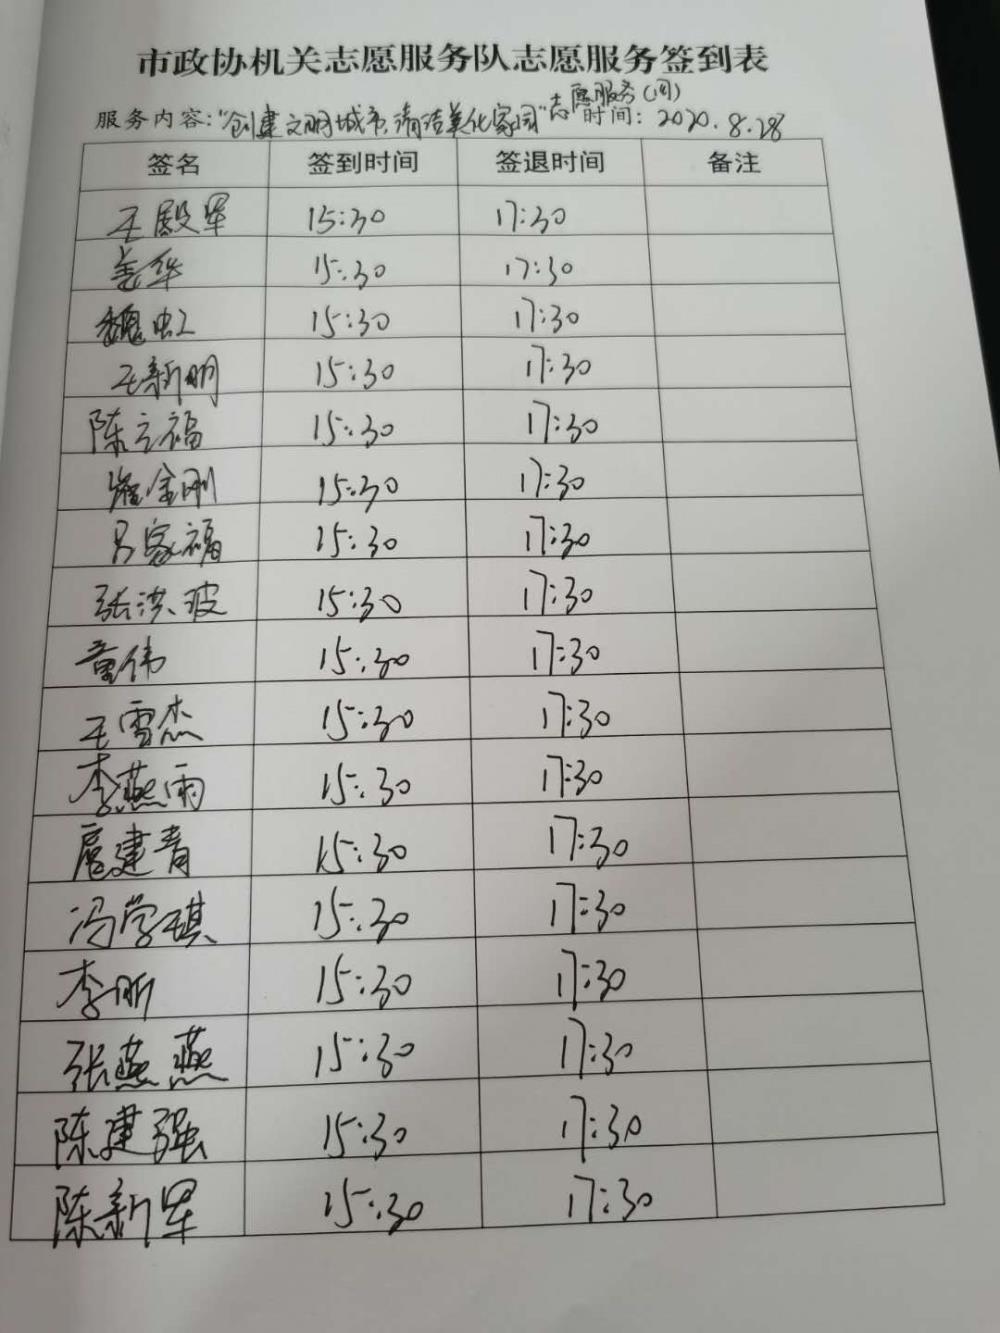 市政协机关志愿服务队志愿服务签到表
服务内容："创建文明城市、清洁美化家园"志愿服务(周) 时间：2020.8.28
签名 签到时间 签退时间 备注
王殿军 15:30 17:30
姜华 15:30 17:30
魏虹 15:30 17:30
王新明 15:30 17:30
陈立福 15:30 17:30
崔金刚 15:30 17:30
吕家福 15:30 17:30
张洪波 15:30 17:30
童伟 15:30 17:30
王雪杰 15:30 17:30
李燕雨 15:30 17:30
扈建青 15:30 17:30
冯学琪 15:30 17:30
李昕 15:30 17:30
张燕燕 15:30 17:30
陈建强 15:30 17:30
陈新军 15:30 17:30